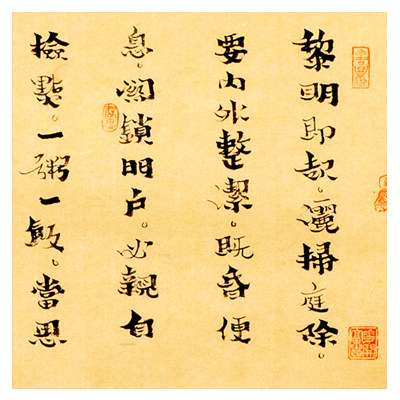 黎明即起。灑掃庭除。
要内外整潔。既昏便
息。關鎖門户。必親自
檢點。一粥一飯。當思